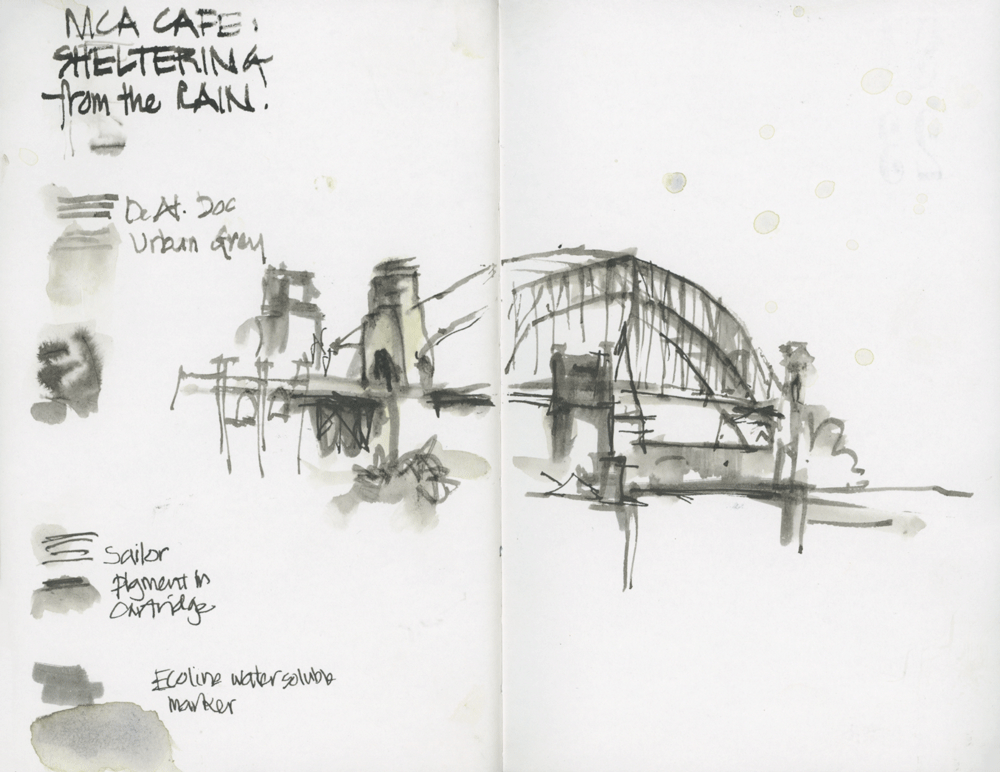 MCA CAFE:
SHELTERING
from the RAIN.
De At. Doc
Urban Grey
Sailor
Pigment in
Cartridge
Ecoline watersoluble
marker